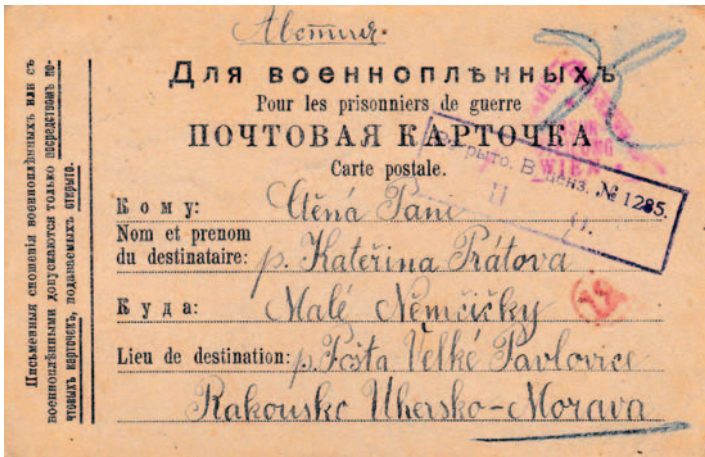 Австрія.
Для военноплѣнныхъ
Pour les prisonniers de guerre
ПОЧТОВАЯ КАРТОЧКА
Carte postale.
WIEN
Вскрыто. В. Ценз. № 1285.
П О.
Кому: Ctěná Paní
Nom et prenom
du destinataire: p. Kateřina Prátova
Куда: Malé Němčičky
12
Lieu de destination: p. Pošta Velké Pavlovice
Rakousko Uhersko-Morava
Письменныя сношенія военноплѣнныхъ или съ
военноплѣнными допускаются только посредствомъ по-
чтовыхъ карточекъ, подаваемыхъ открыто.